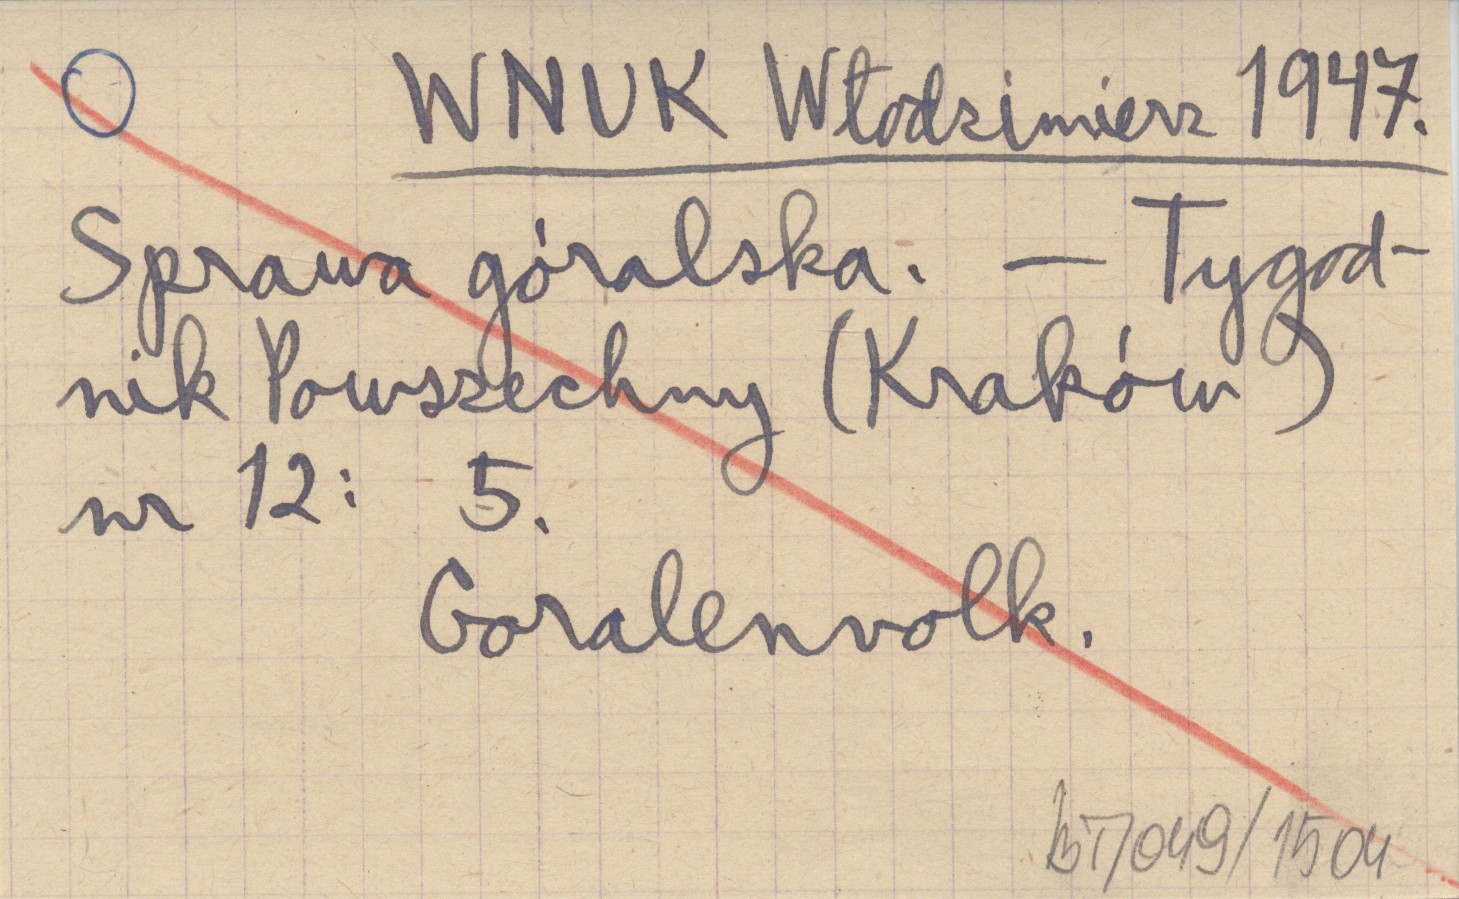 WNUK Włodzimierz 1947.
Sprawa góralska. — Tygod-
nik Powszechny (Kraków)
nr 12: 5.
Goralenvolk.
BT/049/1504